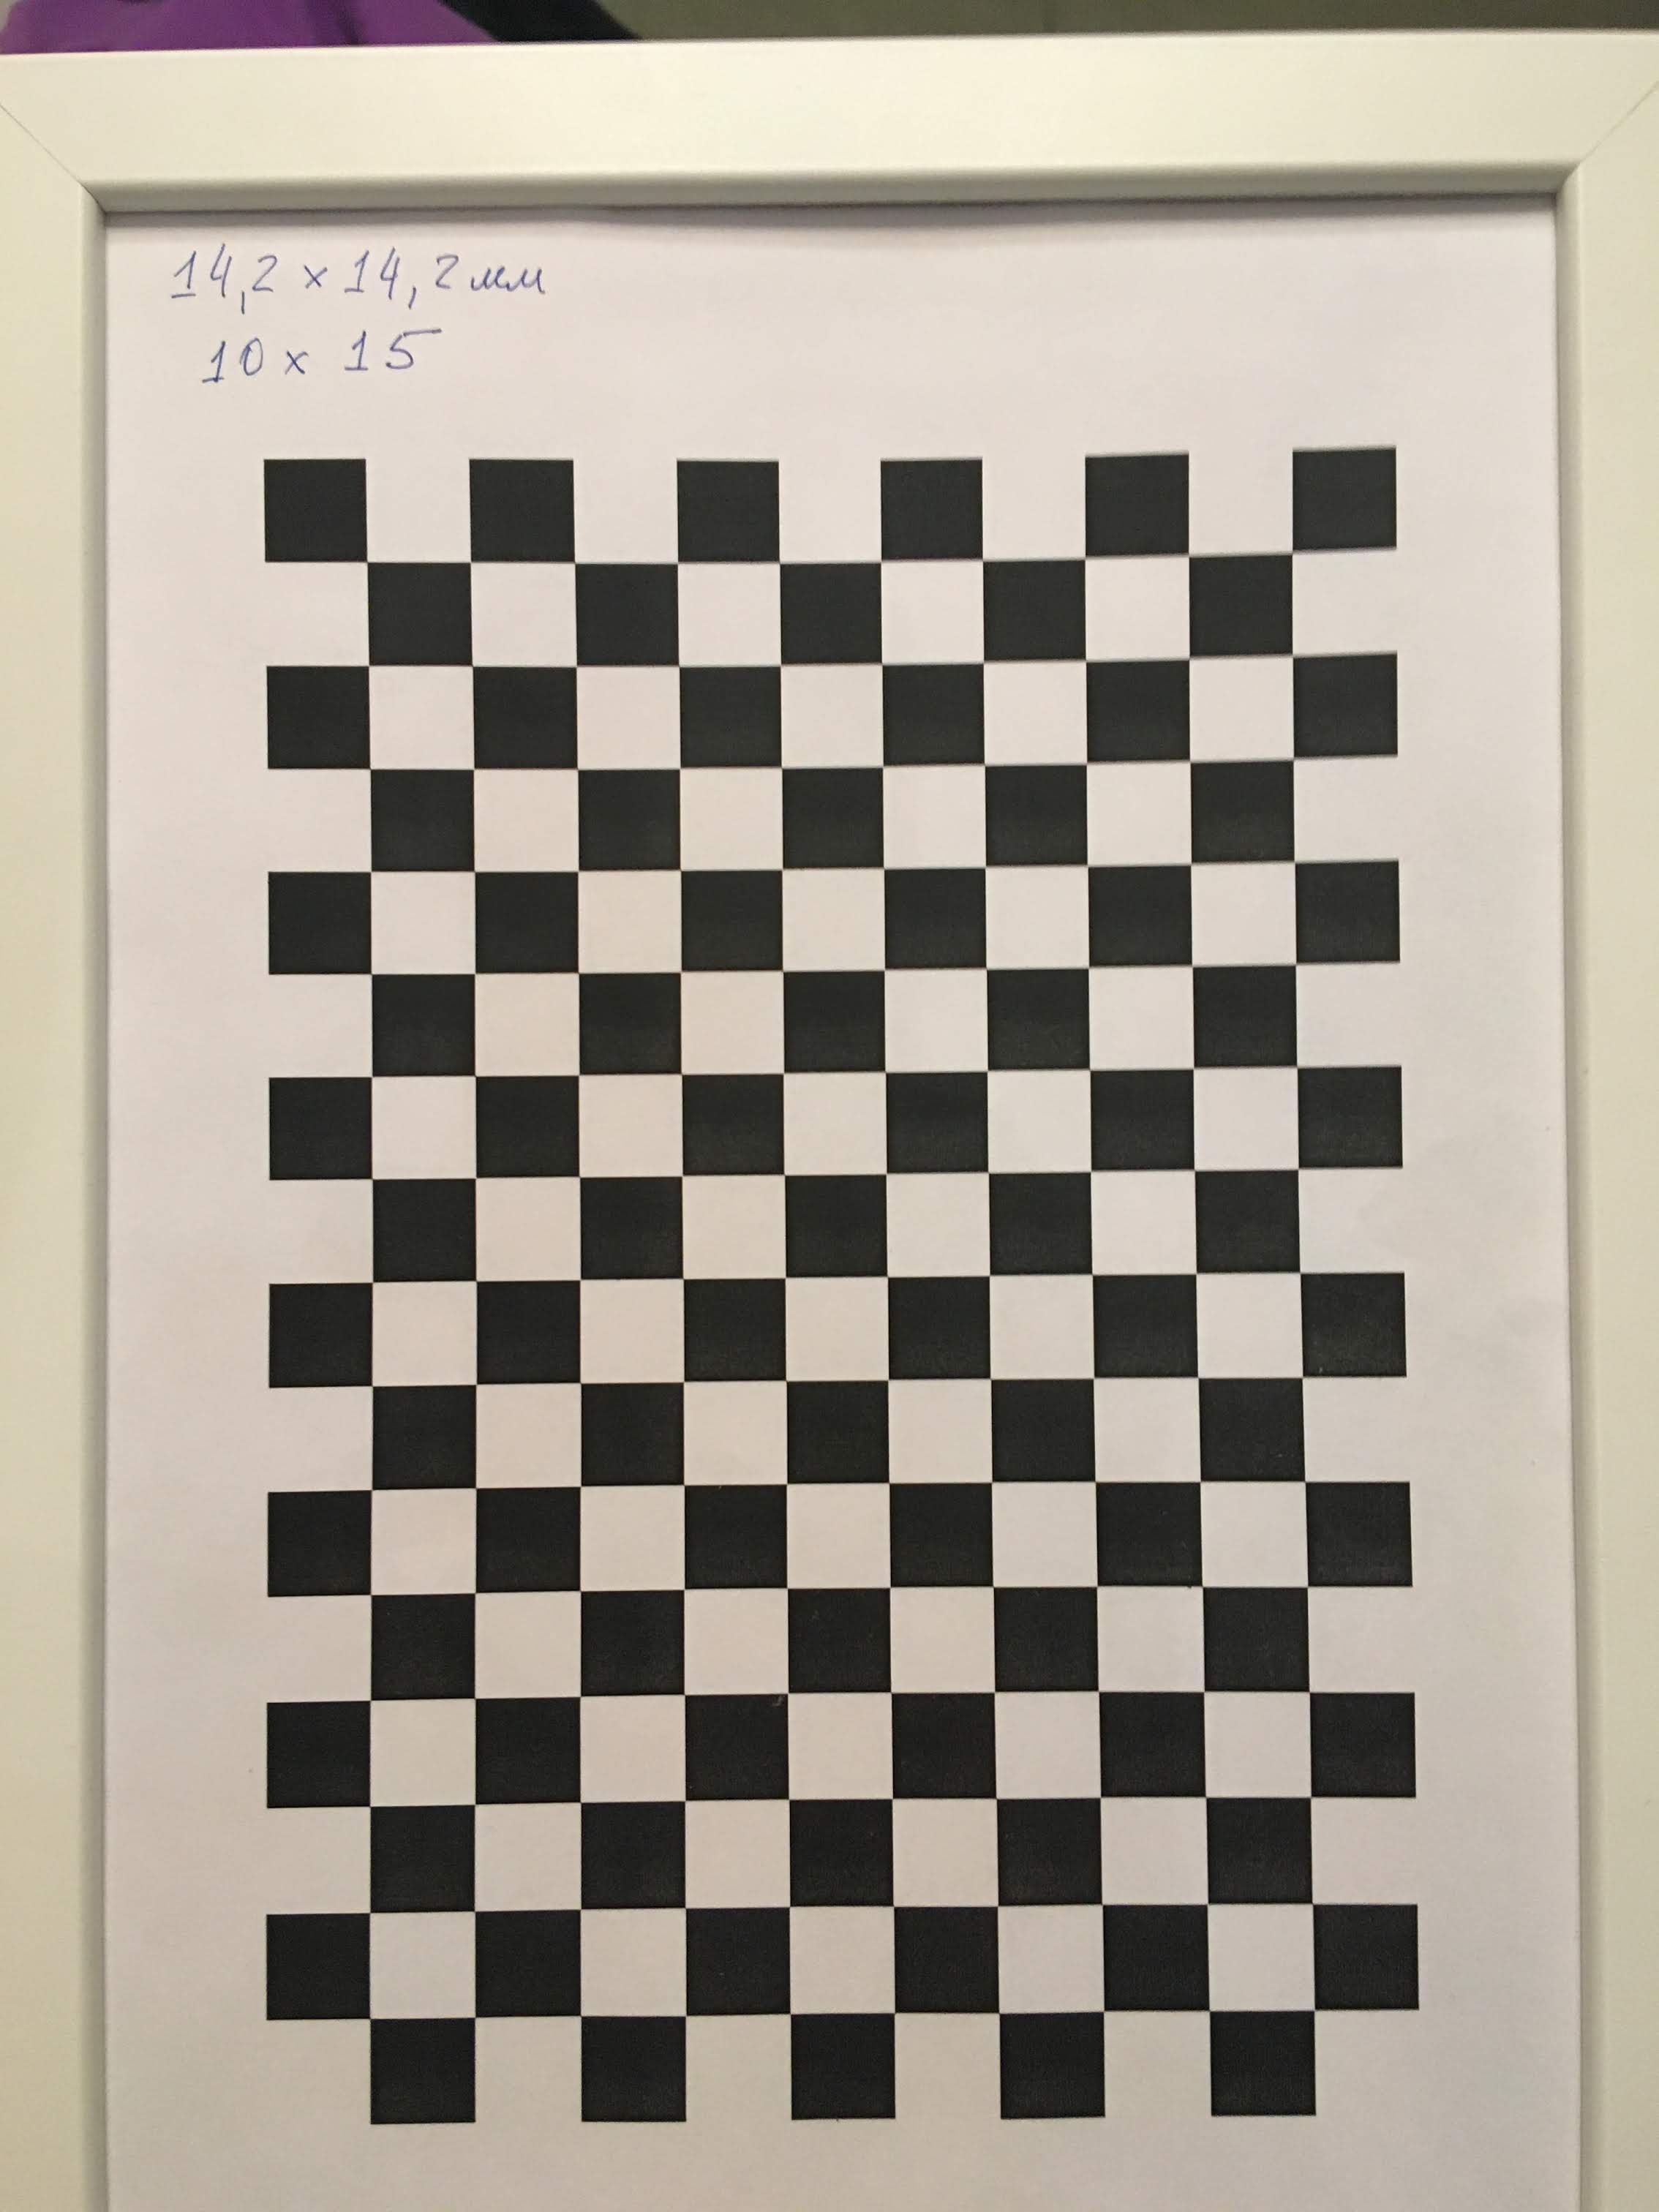 14,2 x 14,2 мм
10 x 15